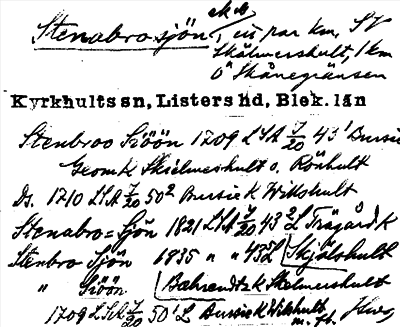 Stenabrosjön, ek. bl. ett par km. SV
Skälmershult, 1 km
Ö Skånegränsen
Kyrkhults sn, Listers hd, Blek. län
Stenbroo Siöön 1709 LSA J/20 43¹ Bursie
Geomk Skielmershult o. Rönhult
Ds. 1710 LSA J/20 50² Bursie K Wilshult
Stenabro=Sjön 1821 LSA J/20 43 2/L Trägård K
Stenbro Sjön 1835 " " 43 2/L Skjälshult
" Siöön Bahrendtz K Skelmershult
1709 LSA J/20 50¹ L Bursie K Wilshult
m. fl.